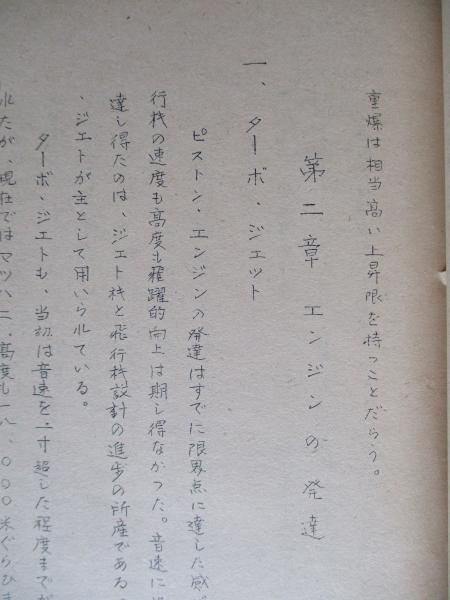 重爆は相当高い上昇限を持つことだらう。
第二章 エンジンの発達
一、ターボ・ジェット
ピストン・エンジンの発達はすでに限界点に達した感が
行机の速度も高度も飛躍的向上は期し得なかつた。音速に
達し得たのは、ジェト机と飛行机設計の進歩の所産である
・ジエトが主として用いられている。
ターボ・ジエトも、当初は音速を一寸超した程度までが
れたが、現在ではマツハ二、高度も一八、〇〇〇米ぐらひま